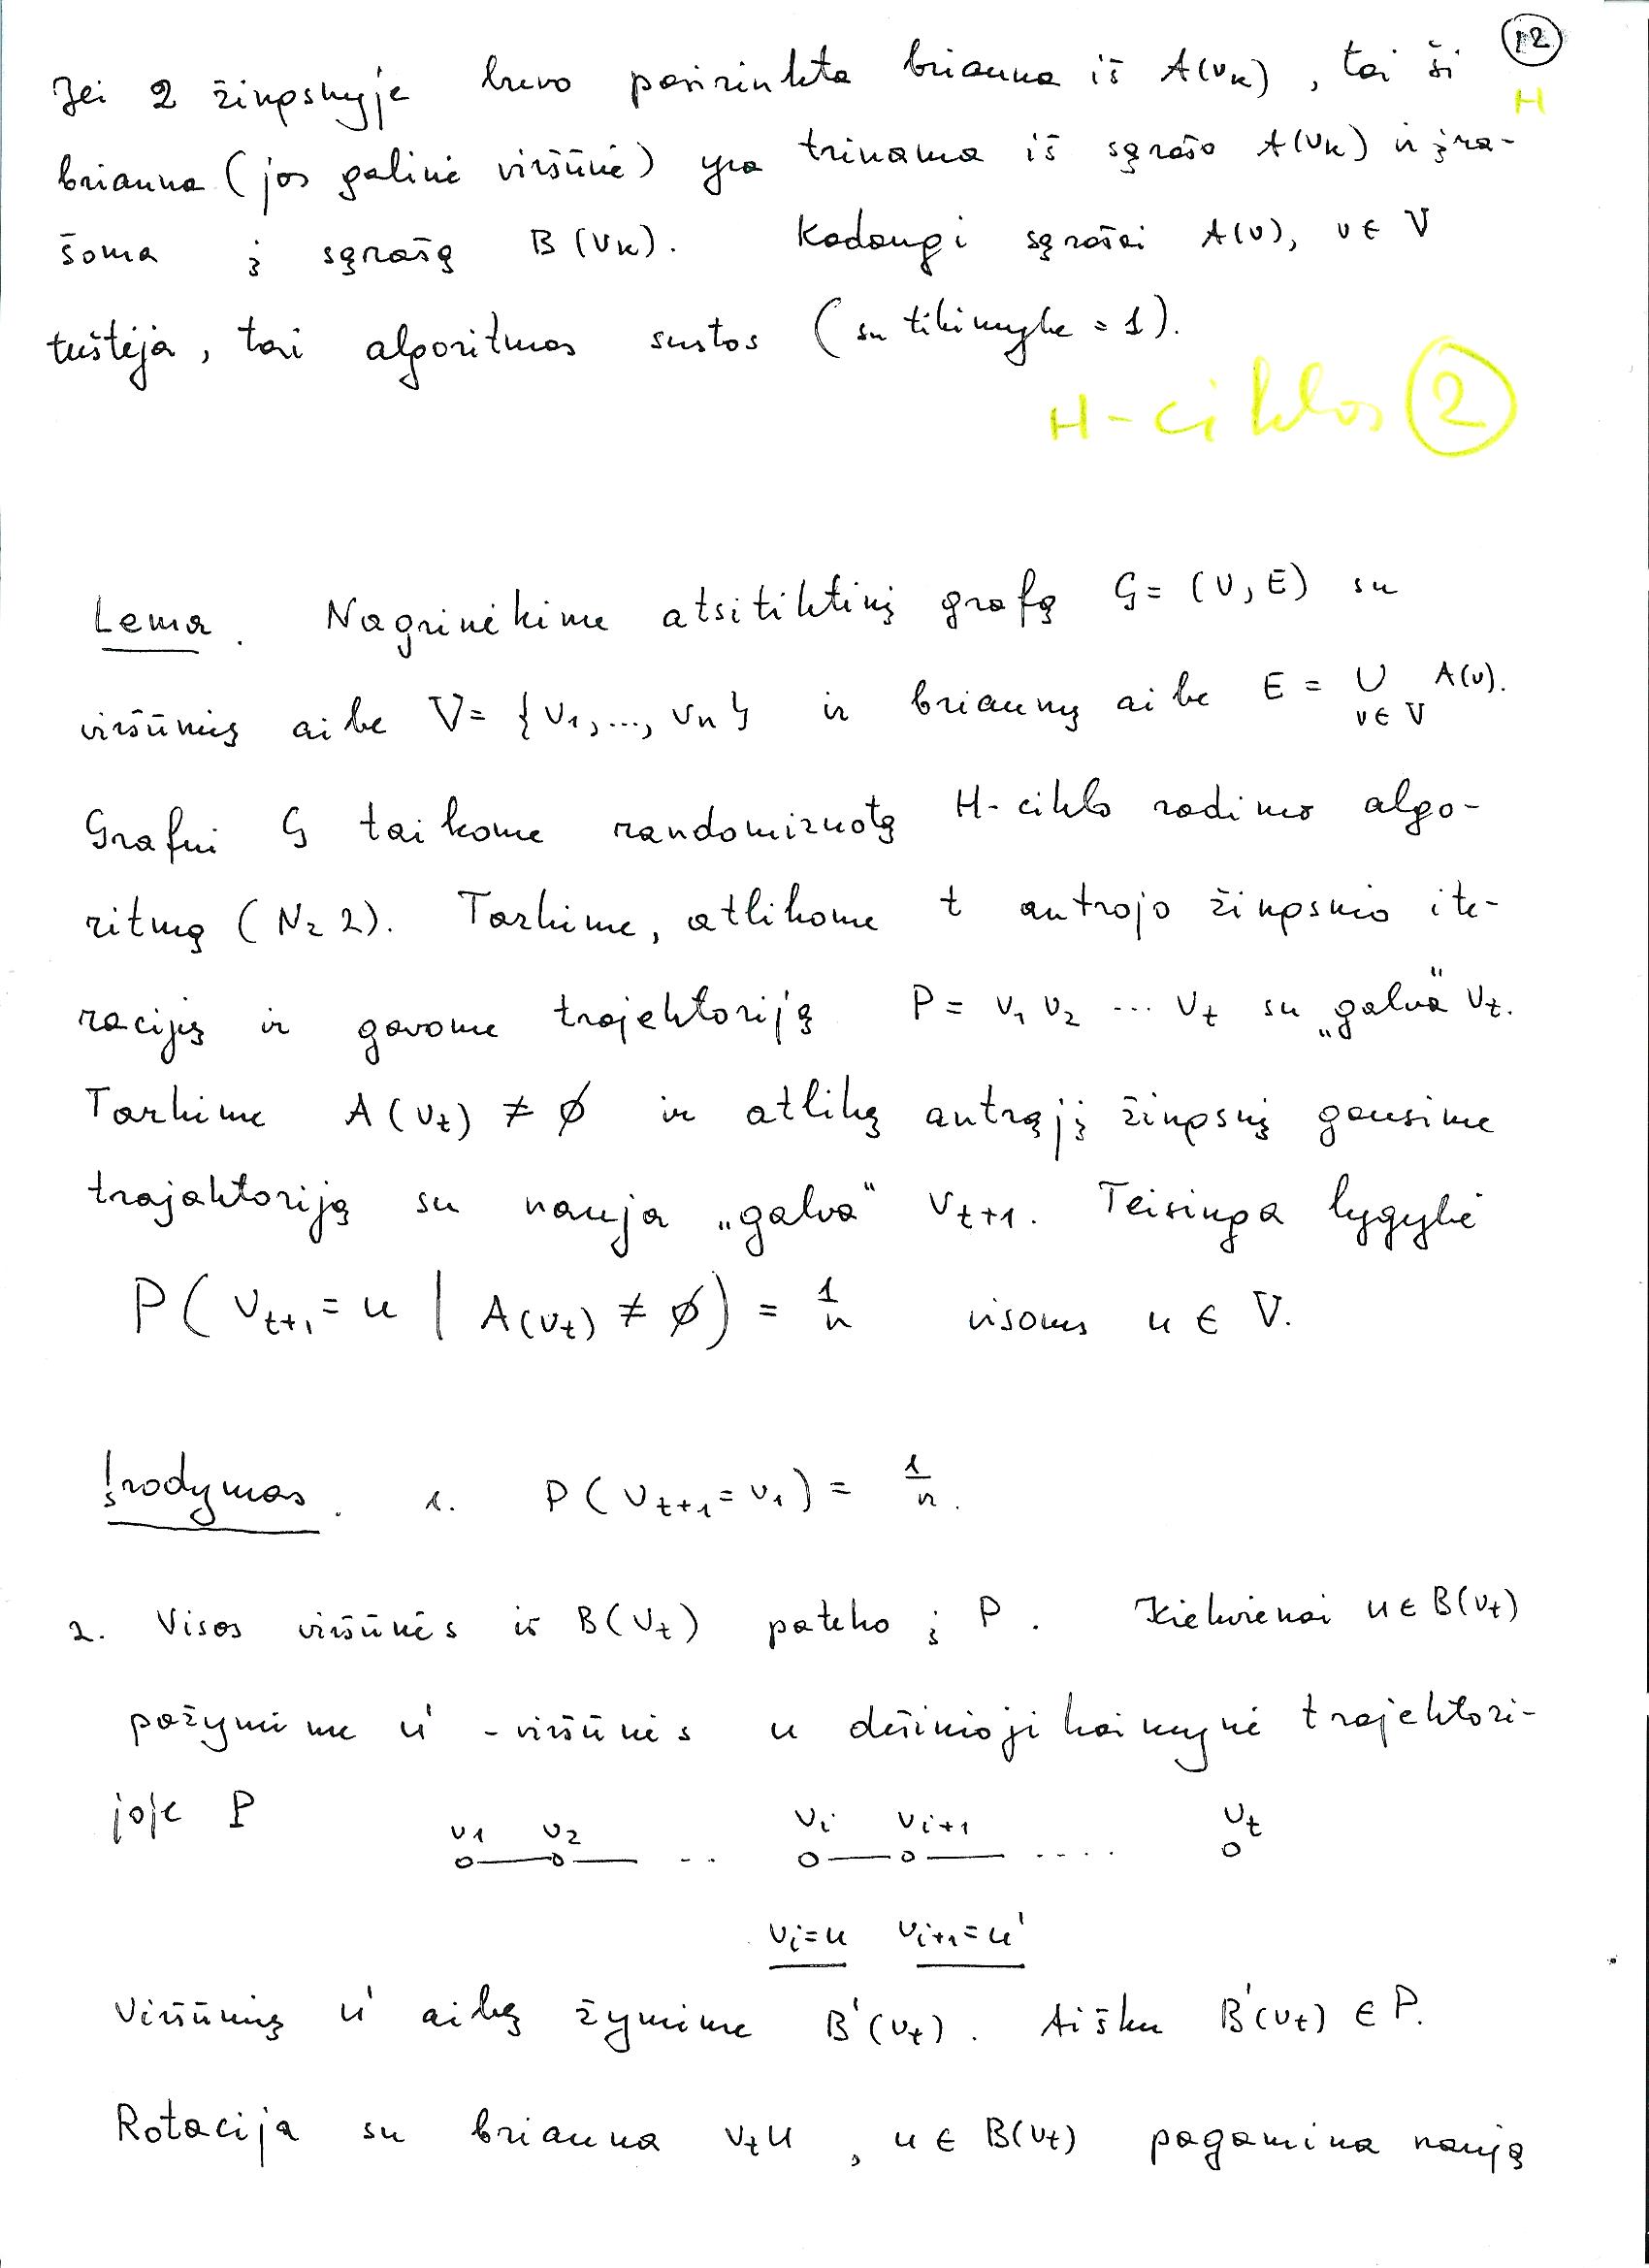 12
Jei 2 žingsnyje buvo pasirinkta briauna iš A(vₖ), tai ši
H
briauna (jos galinė viršūnė) yra trinama iš sąrašo A(vₖ) ir įra-
šoma į sąrašą B(vₖ). Kadangi sąrašai A(v), v ∈ V
tuštėja, tai algoritmas sustos (su tikimybe = 1).
H-ciklas 2
Lema. Nagrinėkime atsitiktinį grafą G = (V, E) su
viršūnių aibe V = {v₁, ..., vₙ} ir briaunų aibe E = ∪ A(v).
v ∈ V
Grafui G taikome randomizuotą H-ciklo radimo algo-
ritmą (Nr 2). Tarkime, atlikome t antrojo žingsnio ite-
racijų ir gavome trajektoriją P = v₁ v₂ ... vₜ su „galva“ vₜ.
Tarkime A(vₜ) ≠ ∅ ir atlikę antrąjį žingsnį gausime
trajektoriją su nauja „galva“ vₜ₊₁. Teisinga lygybė
P(vₜ₊₁ = u | A(vₜ) ≠ ∅) = 1/n visoms u ∈ V.
Įrodymas. 1. P(vₜ₊₁ = v₁) = 1/n.
2. Visos viršūnės iš B(vₜ) pateko į P. Kiekvienai u ∈ B(vₜ)
pažymime u' - viršūnės u dešinioji kaimynė trajektori-
joje P
v₁ v₂ .. vᵢ vᵢ₊₁ .... vₜ
vᵢ = u vᵢ₊₁ = u'
Viršūnių u' aibę žymime B'(vₜ). Aišku B'(vₜ) ∈ P.
Rotacija su briauna vₜu, u ∈ B(vₜ) pagamina naują